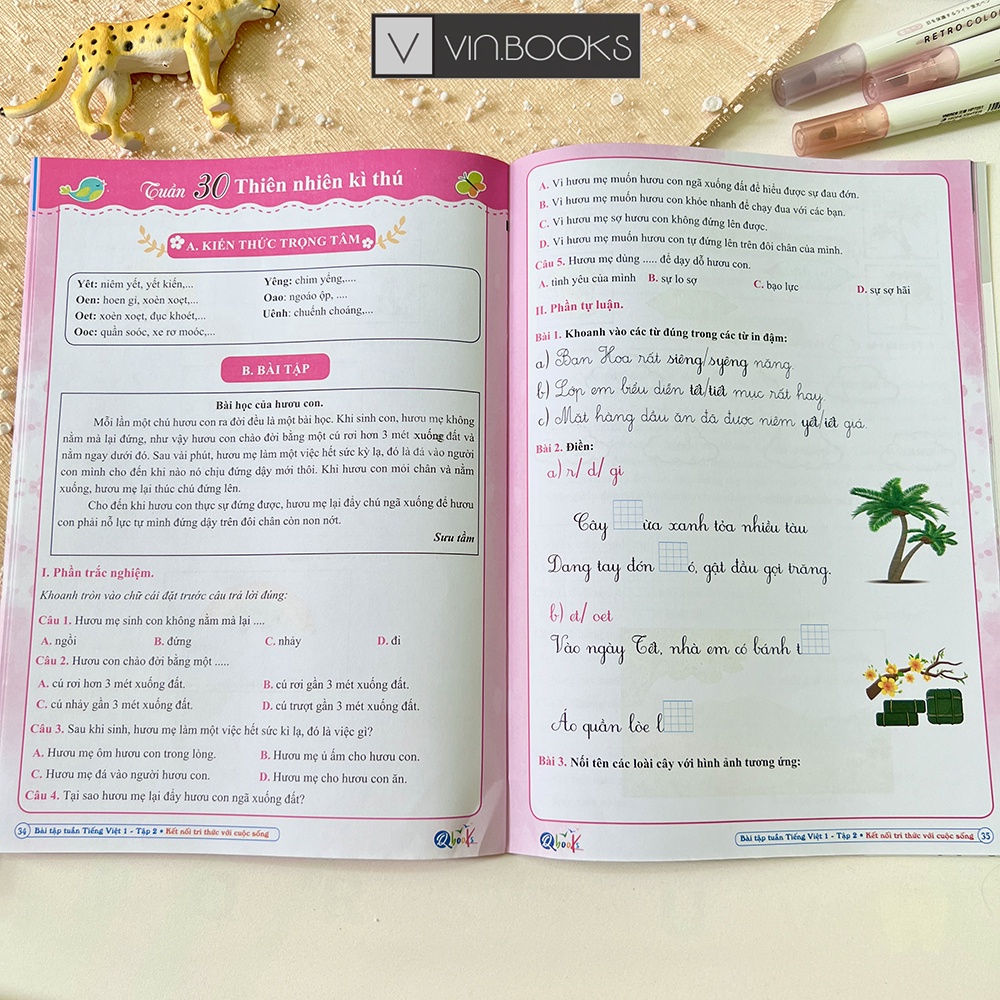 V VIN.BOOKS
RETRO COLO
Tuần 30 Thiên nhiên kì thú
A. KIẾN THỨC TRỌNG TÂM
Yêt: niêm yết, yết kiến,...
Oen: hoen gỉ, xoèn xoẹt,...
Oet: xoèn xoẹt, đục khoét,...
Ooc: quần soóc, xe rơ moóc,...
Yêng: chim yểng,....
Oao: ngoáo ộp, ....
Uênh: chuếnh choáng,...
B. BÀI TẬP
Bài học của hươu con.
Mỗi lần một chú hươu con ra đời đều là một bài học. Khi sinh con, hươu mẹ không
nằm mà lại đứng, như vậy hươu con chào đời bằng một cú rơi hơn 3 mét xuống đất và
nằm ngay dưới đó. Sau vài phút, hươu mẹ làm một việc hết sức kỳ lạ, đó là đá vào người
con mình cho đến khi nào nó chịu đứng dậy mới thôi. Khi hươu con mỏi chân và nằm
xuống, hươu mẹ lại thúc chú đứng lên.
Cho đến khi hươu con thực sự đứng được, hươu mẹ lại đẩy chú ngã xuống để hươu
con phải nỗ lực tự mình đứng dậy trên đôi chân còn non nớt.
Sưu tầm
I. Phần trắc nghiệm.
Khoanh tròn vào chữ cái đặt trước câu trả lời đúng:
Câu 1. Hươu mẹ sinh con không nằm mà lại ....
A. ngồi B. đứng C. nhảy D. đi
Câu 2. Hươu con chào đời bằng một .....
A. cú rơi hơn 3 mét xuống đất. B. cú rơi gần 3 mét xuống đất.
C. cú nhảy gần 3 mét xuống đất. D. cú trượt gần 3 mét xuống đất.
Câu 3. Sau khi sinh, hươu mẹ làm một việc hết sức kì lạ, đó là việc gì?
A. Hươu mẹ ôm hươu con trong lòng. B. Hươu mẹ ủ ấm cho hươu con.
C. Hươu mẹ đá vào người hươu con. D. Hươu mẹ cho hươu con ăn.
Câu 4. Tại sao hươu mẹ lại đẩy hươu con ngã xuống đất?
34 Bài tập tuần Tiếng Việt 1 - Tập 2 • Kết nối tri thức với cuộc sống
Qbooks
A. Vì hươu mẹ muốn hươu con ngã xuống đất để hiểu được sự đau đớn.
B. Vì hươu mẹ muốn hươu con khóe nhanh để chạy đua với các bạn.
C. Vì hươu mẹ sợ hươu con không đứng lên được.
D. Vì hươu mẹ muốn hươu con tự đứng lên trên đôi chân của mình.
Câu 5. Hươu mẹ dùng ..... để dạy dỗ hươu con.
A. tình yêu của mình B. sự lo sợ C. bạo lực D. sự sợ hãi
II. Phần tự luận.
Bài 1. Khoanh vào các từ đúng trong các từ in đậm:
a) Bạn Hoa rất siêng/syêng năng.
b) Lớp em biểu diễn tết/tiết mục rất hay.
c) Mặt hàng dầu ăn đã được niêm yết/iết giá.
Bài 2. Điền:
a) r/ d/ gi
Cây ừa xanh tỏa nhiều tàu
Dang tay đón ó, gật đầu gọi trăng.
b) et/ oet
Vào ngày Tết, nhà em có bánh t
Áo quần lòe l
Bài 3. Nối tên các loài cây với hình ảnh tương ứng:
Qbooks
Bài tập tuần Tiếng Việt 1 - Tập 2 • Kết nối tri thức với cuộc sống 35